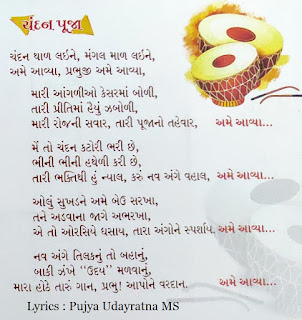 ચંદન પૂજા
ચંદન થાળ લઈને, મંગલ માળ લઈને,
અમે આવ્યા, પ્રભુજી અમે આવ્યા,
મારી આંગળીઓ કેસરમાં બોળી,
તારી પ્રીતિમાં હૈયું ઝબોળી,
મારી રોજની સવાર, તારી પૂજાનો તહેવાર, અમે આવ્યા...
મેં તો ચંદન કટોરી ભરી છે,
ભીની ભીની હથેળી કરી છે,
તારી ભક્તિથી હું ન્યાલ, કરું નવ અંગે વહાલ, અમે આવ્યા...
ઓલું સુખડને અમે બેઉ સરખા,
તને અડવાના જાગે અભરખા,
એ તો ઓરસિયે ઘસાય, તારા અંગોને સ્પર્શાય, અમે આવ્યા...
નવ અંગે તિલકનું તો બહાનું,
બાકી ઝંખે "ઉદય" મળવાનું,
મારા હોઠે તારું ગાન, પ્રભુ! આપોને વરદાન. અમે આવ્યા...
Lyrics : Pujya Udayratna MS